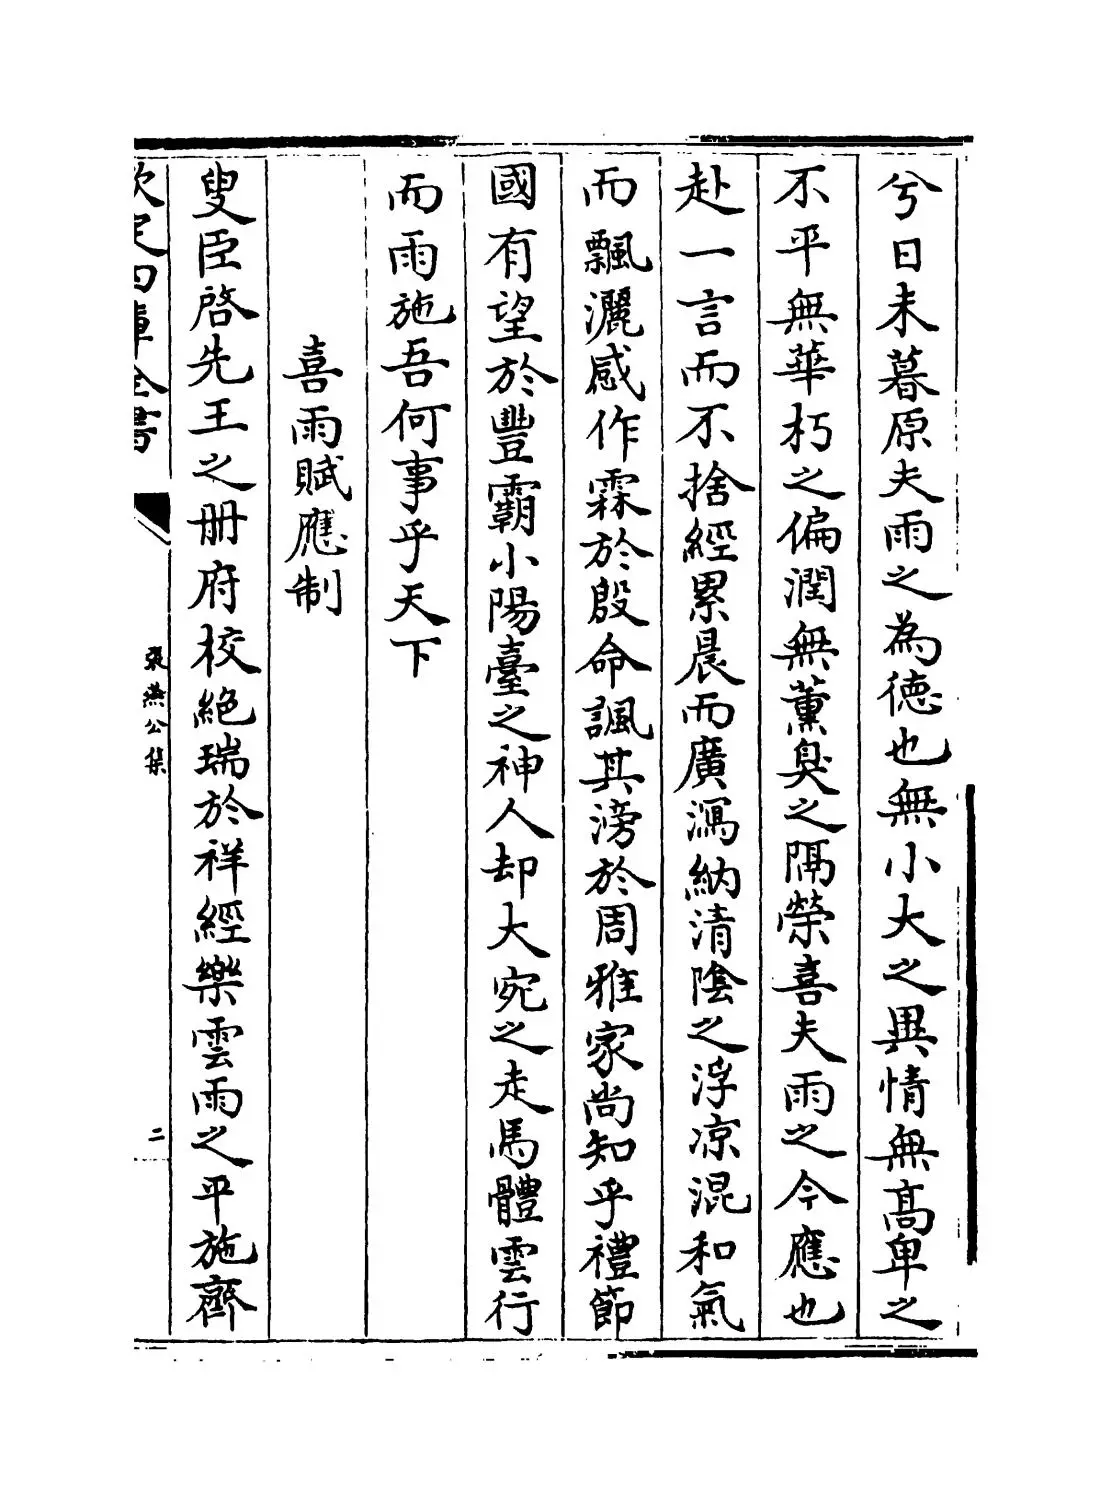 兮日未暮原夫雨之為德也無小大之異情無髙卑之
不平無華朽之偏潤無薰臭之隔榮喜夫雨之今應也
赴一言而不捨經累晨而廣瀉納清陰之浮凉混和氣
而飄灑感作霖於殷命諷其滂於周雅家尚知乎禮節
國有望於豐霸小陽臺之神人却大宛之走馬體雲行
而雨施吾何事乎天下
喜雨賦應制
叟臣啓先王之册府校絶瑞於祥經樂雲雨之平施齊
欽定四庫全書
張燕公集
二